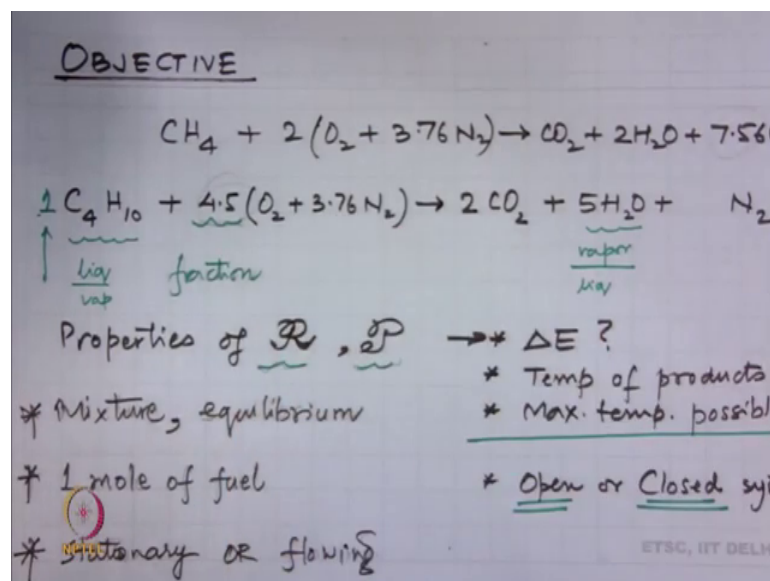 OBJECTIVE
CH₄ + 2(O₂ + 3.76 N₂) → CO₂ + 2H₂O + 7.56
1 C₄H₁₀ + 4.5(O₂ + 3.76 N₂) → 2 CO₂ + 5H₂O + N₂
liq
vap
fraction
vapor
liq
Properties of R, P → * ΔE ?
* Temp of products
* Max. temp. possibl
* Mixture, equilibrium
* 1 mole of fuel
* Open or Closed sy
* Stationary OR flowing
NPTEL
ETSC, IIT DELH